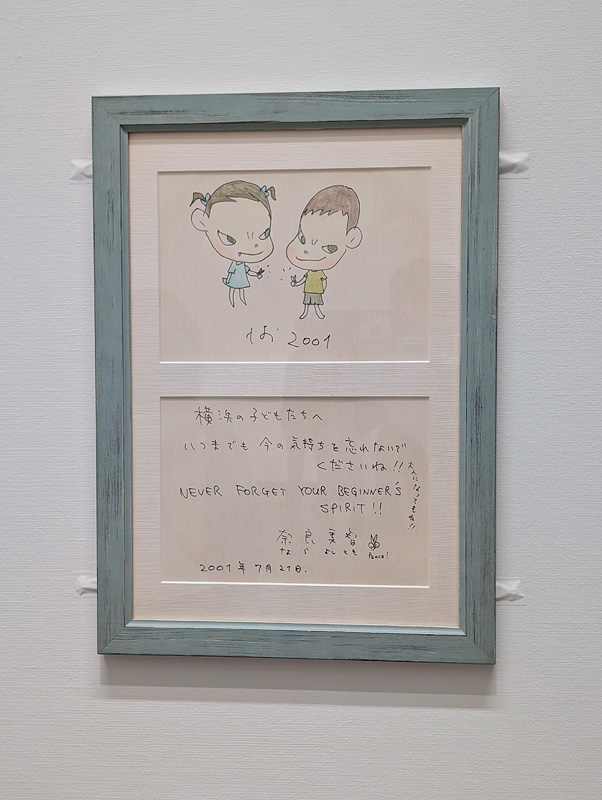 2001
横浜の子どもたちへ
いつまでも 今の気持ちを忘れないで
くださいね!!
大人になってもね!!
NEVER FORGET YOUR BEGINNER'S
SPIRIT!!
奈良美智
なら よしとも
Peace!
2001年7月21日.